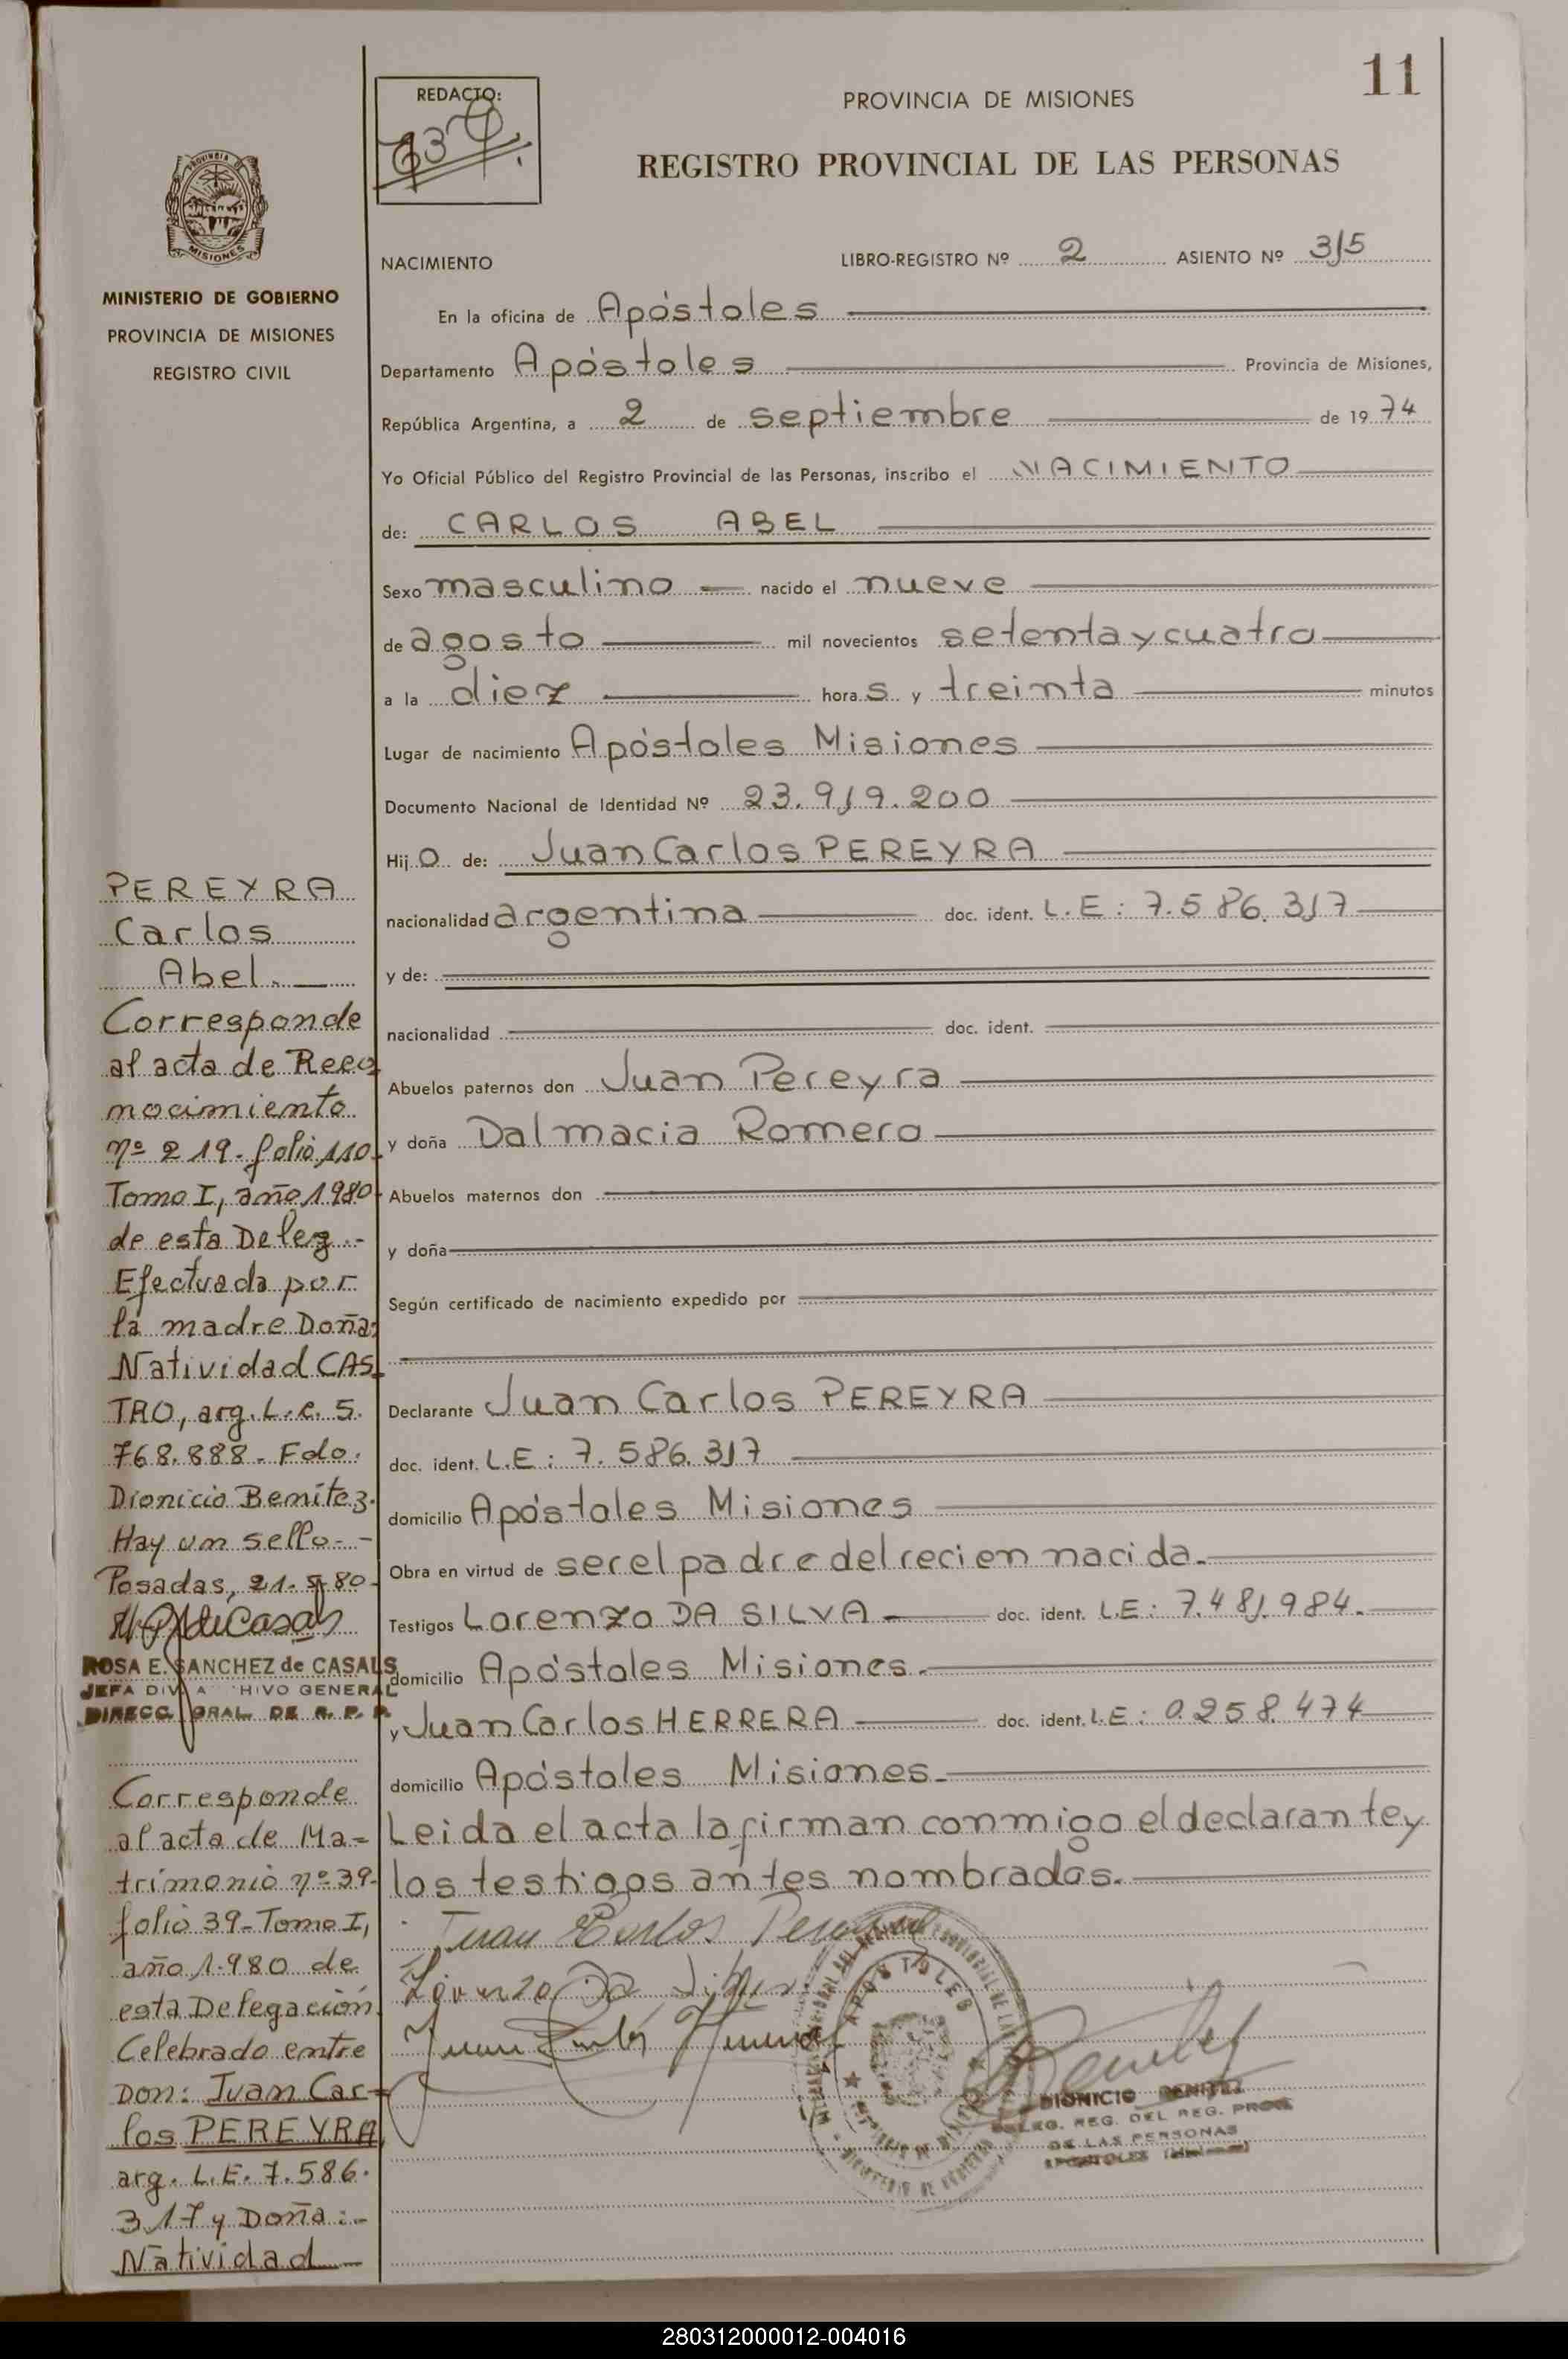 11
REDACTO:
PROVINCIA DE MISIONES
REGISTRO PROVINCIAL DE LAS PERSONAS
PROVINCIA DE
MISIONES
MINISTERIO DE GOBIERNO
PROVINCIA DE MISIONES
REGISTRO CIVIL
NACIMIENTO LIBRO-REGISTRO Nº 2 ASIENTO Nº 315
En la oficina de Apóstoles
Departamento Apóstoles Provincia de Misiones,
República Argentina, a 2 de septiembre de 1974
Yo Oficial Público del Registro Provincial de las Personas, inscribo el NACIMIENTO
de: CARLOS ABEL
Sexo masculino nacido el nueve
de agosto mil novecientos setenta y cuatro
a la diez horas y treinta minutos
Lugar de nacimiento Apóstoles Misiones
Documento Nacional de Identidad Nº 23.919.200
Hijo de: Juan Carlos PEREYRA
nacionalidad argentina doc. ident. L.E: 7.586.317
y de:
nacionalidad doc. ident.
Abuelos paternos don Juan Pereyra
y doña Dalmacia Romero
Abuelos maternos don
y doña
Según certificado de nacimiento expedido por
Declarante Juan Carlos PEREYRA
doc. ident. L.E: 7.586.317
domicilio Apóstoles Misiones
Obra en virtud de ser el padre del recien nacido.
Testigos Lorenzo DA SILVA doc. ident. L.E: 7.481.984.
domicilio Apóstoles Misiones.
y Juan Carlos HERRERA doc. ident. L.E: 0.258.474
domicilio Apóstoles Misiones.
Leida el acta la firman conmigo el declarante y
los testigos antes nombrados.
Juan Carlos Pereyra
Lorenzo Da Silva
Juan Carlos Herrera
APOSTOLES
DIONICIO BENITEZ
DELEG. REG. DEL REG. PROV.
DE LAS PERSONAS
APOSTOLES (Misiones)
PEREYRA
Carlos
Abel.
Corresponde
al acta de Reco
nocimiento
nº 219. folio 110.
Tomo I, año 1980
de esta Deleg.-
Efectuada por
la madre Doña:
Natividad CAS
TRO, arg. L.C. 5.
768.888. Fdo.
Dionicio Benítez.
Hay un sello.-
Posadas, 21.5.80.
ROSA E. SANCHEZ de CASALS
JEFA DIV. ARCHIVO GENERAL
DIRECC. GRAL. DE R. P. P.
Corresponde
al acta de Ma-
trimonio nº 39.
folio 39-Tomo I,
año 1.980 de
esta Delegación
Celebrado entre
Don: Juan Car-
los PEREYRA,
arg. L.E. 7.586.
317 y Doña:-
Natividad
280312000012-004016